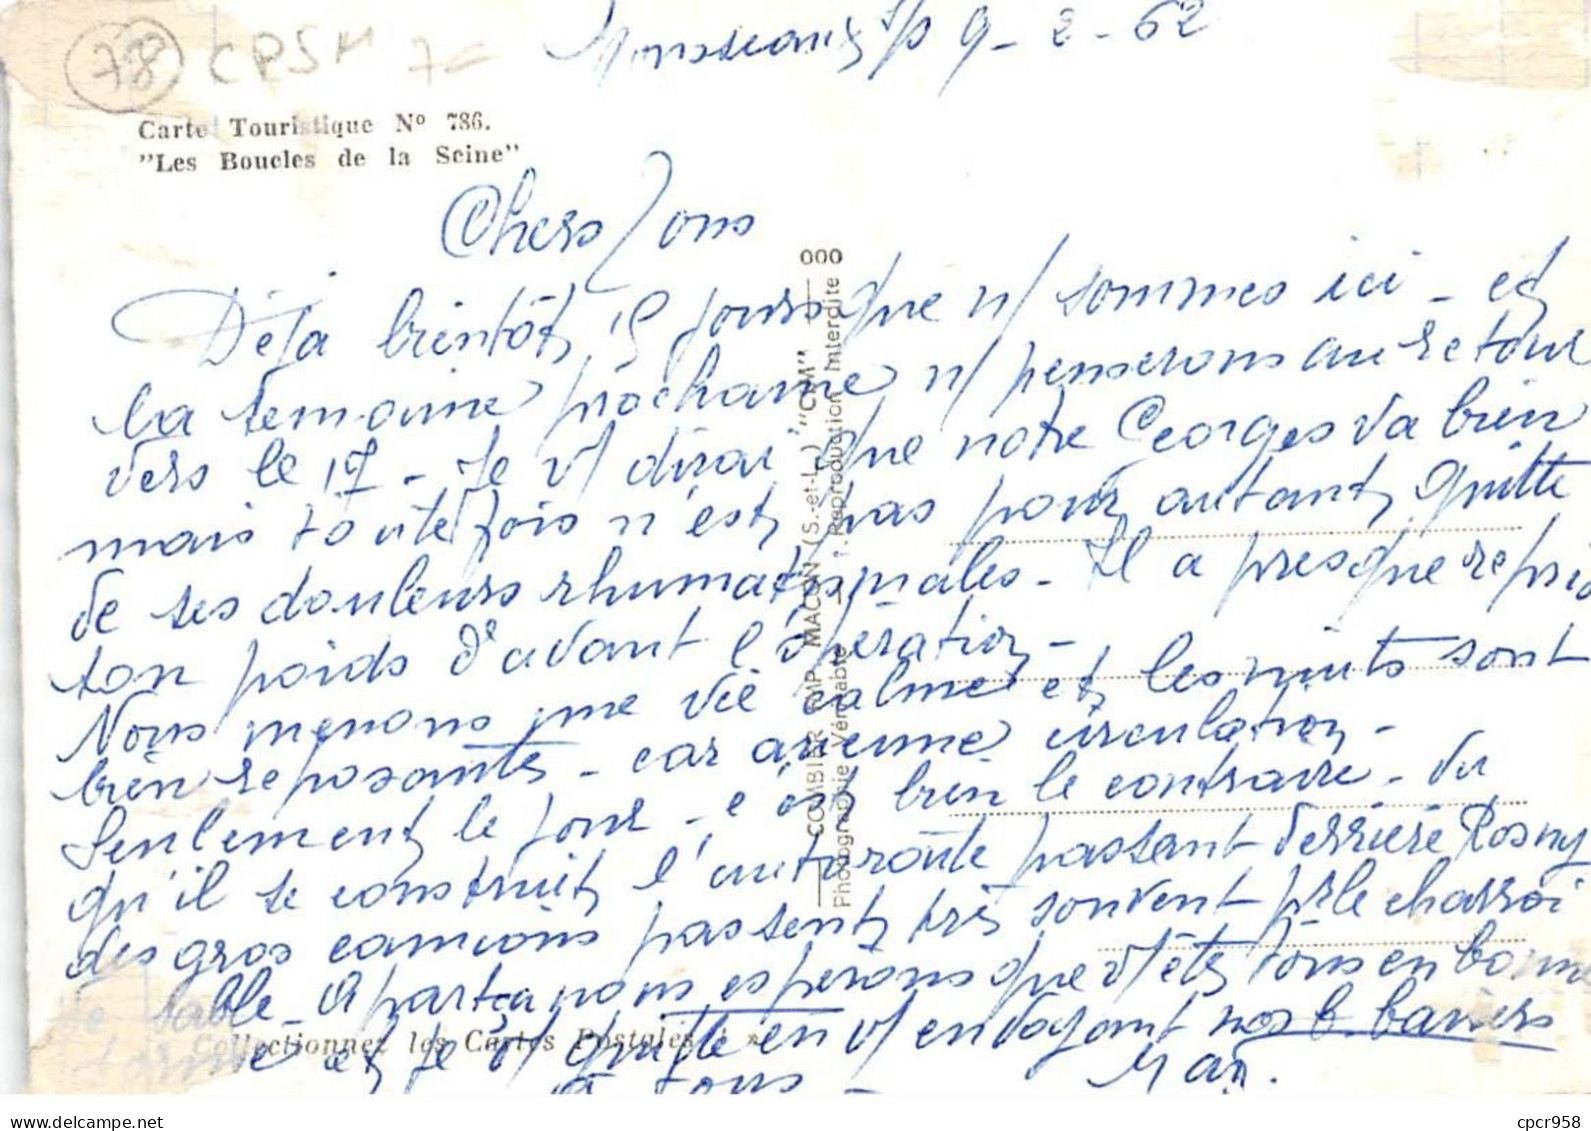 78 CPSM 7
Mousseaux s/s 9-2-62
Carte Touristique N° 786.
"Les Boucles de la Seine"
Chers Tous
Déjà bientôt 15 jours que n/ sommes ici - et
la semaine prochaine n/ penserons au retour
vers le 17 - Je v/ dirai que notre Georges va bien
mais toutefois n'est pas pour autant quitte
de ses douleurs rhumatismales - Il a presque repris
son poids d'avant l'opération -
Nous menons une vie calme et les nuits sont
bien reposantes - car aucune circulation -
Seulement le jour - c'est bien le contraire - du
qu'il se construit l'autoroute passant derrière Rosny
des gros camions passent très souvent pr le charroi
de sable - A part ça nous espérons que v/ êtes tous en bonne
forme et je v/ quitte en v/ envoyant nos b. baisers
à tous - Man.
000
COMBIER IMP. MACON (S.-et-L.) "CIM"
Photographie Véritable - Reproduction Interdite
Collectionnez les Cartes Postales »
cpcr958